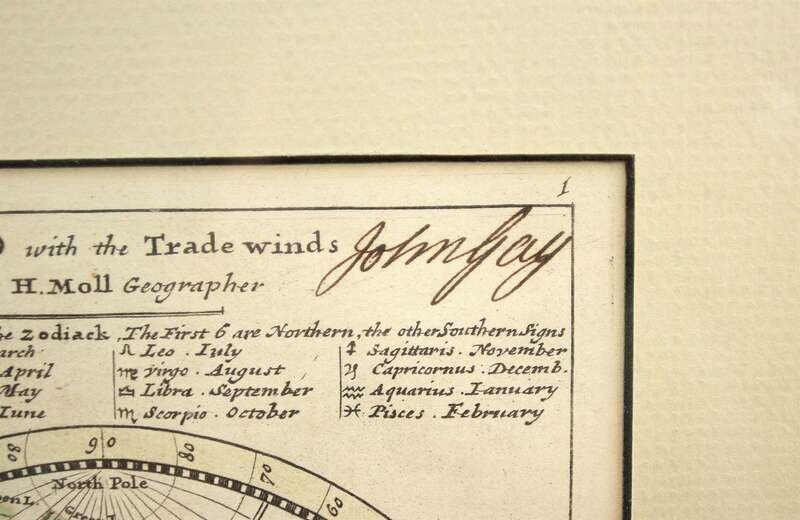 1
with the Trade winds John Gay
H. Moll Geographer
Zodiack, The First 6 are Northern, the other Southern Signs
♌ Leo . Iuly ♐ Sagittaris . November
April ♍ Virgo . August ♑ Capricornus . Decemb.
May ♎ Libra . September ♒ Aquarius . Ianuary
Iune ♏ Scorpio . October ♓ Pisces . February
80 90 80 70 60
North Pole